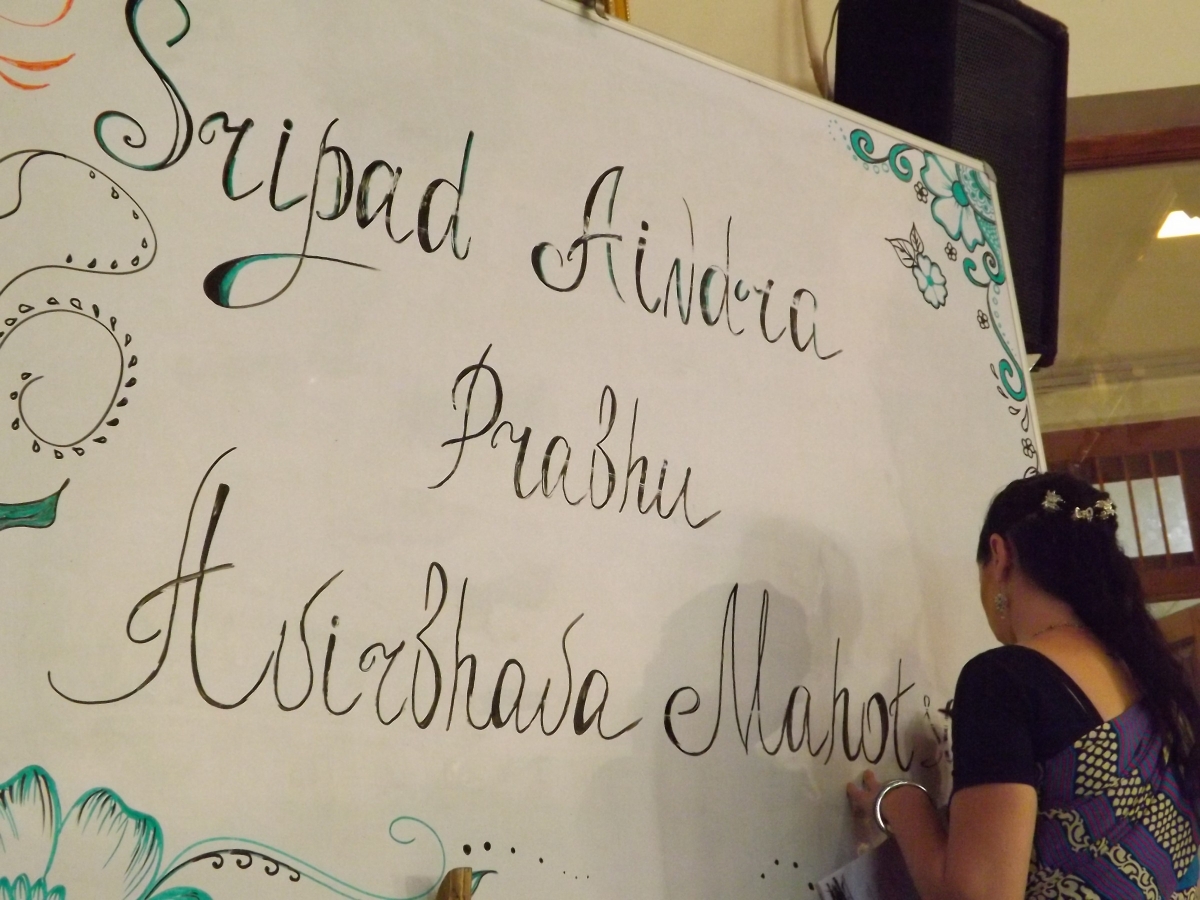 Sripad Aindra
Prabhu
Avirbhava Mahots